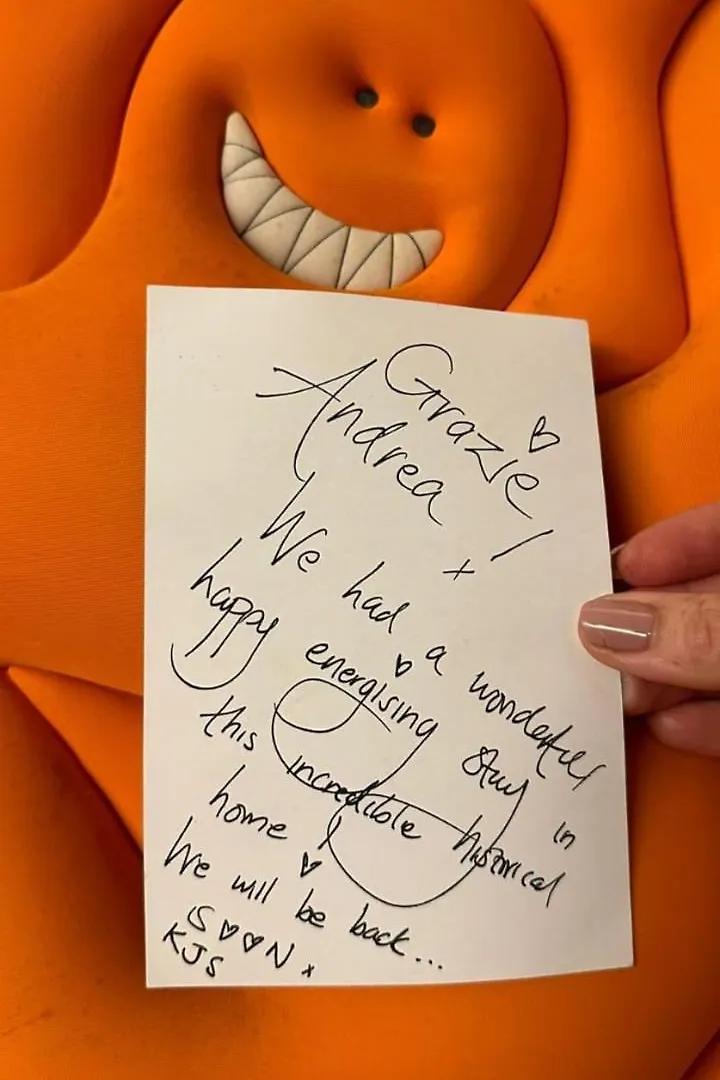 Grazie,
Andrea!
x
We had a wonderful
happy energising stay in
this incredible historical
home!
We will be back...
S♡♡N x
KJS